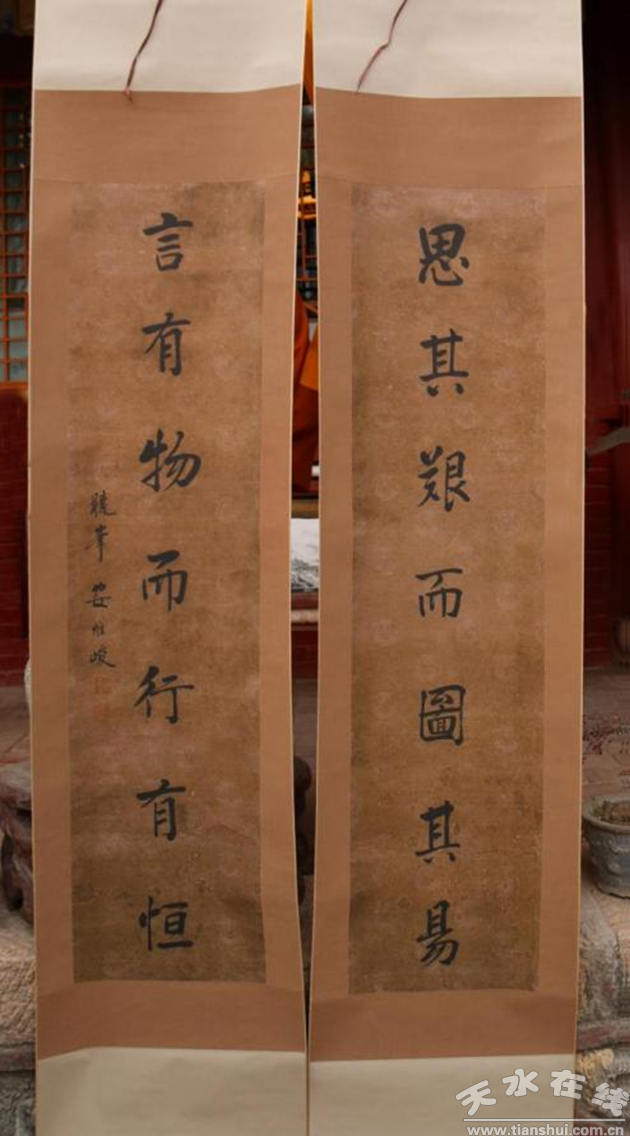 思其艱而圖其易
言有物而行有恒
曉峯安維峻
天水在线
www.tianshui.com.cn